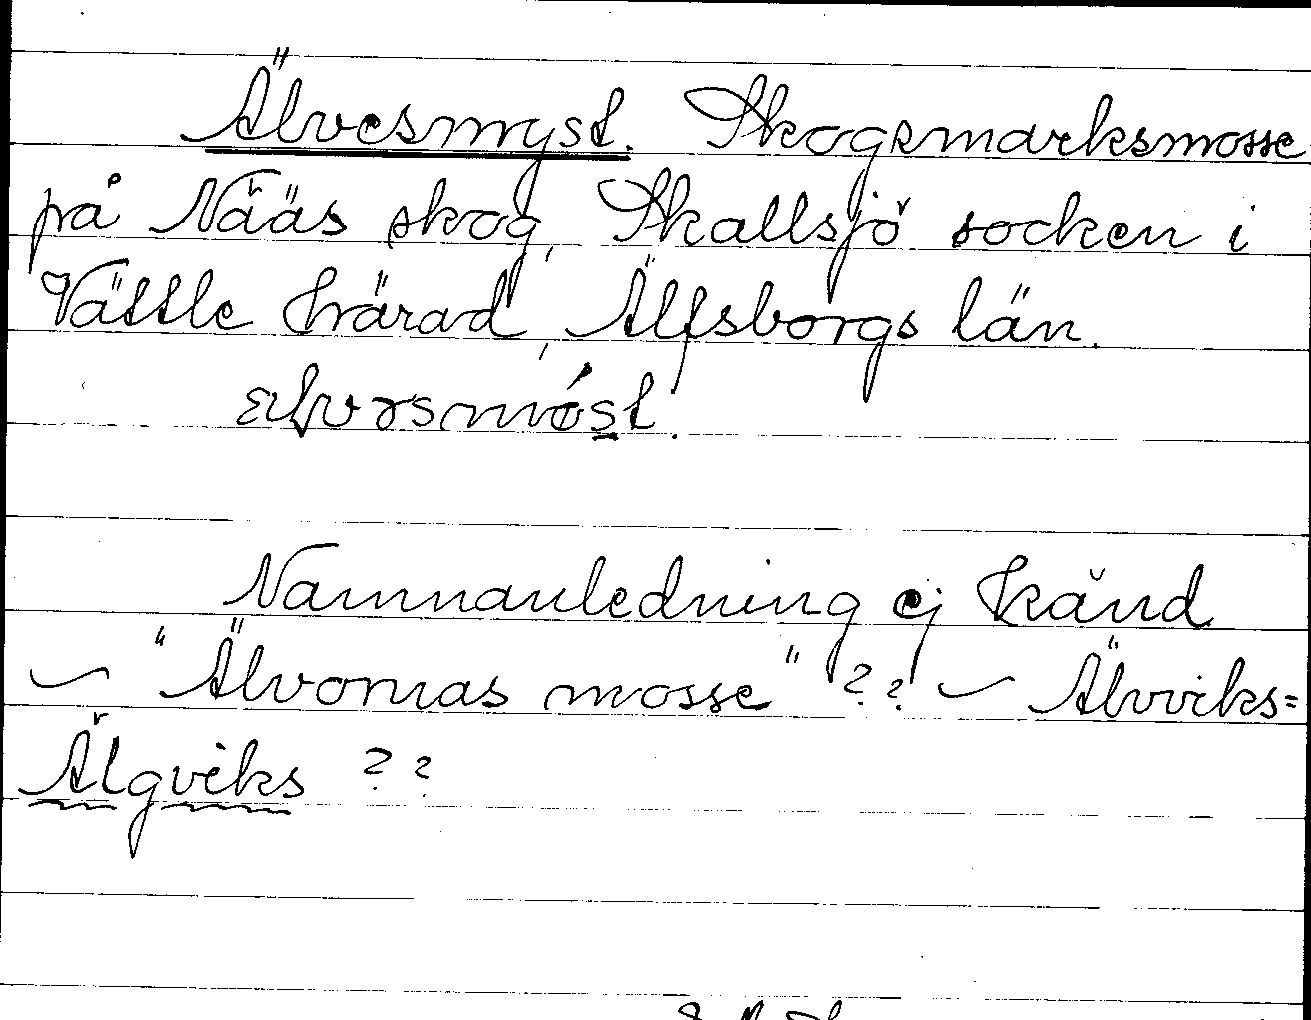 Älvesmyst. Skogsmarksmosse
på Nääs skog, Skallsjö socken i
Vättle härad, Älfsborgs län.
Namnanledning ej känd
— "Älvornas mosse" ?? — Älvviks=
Älgviks ??